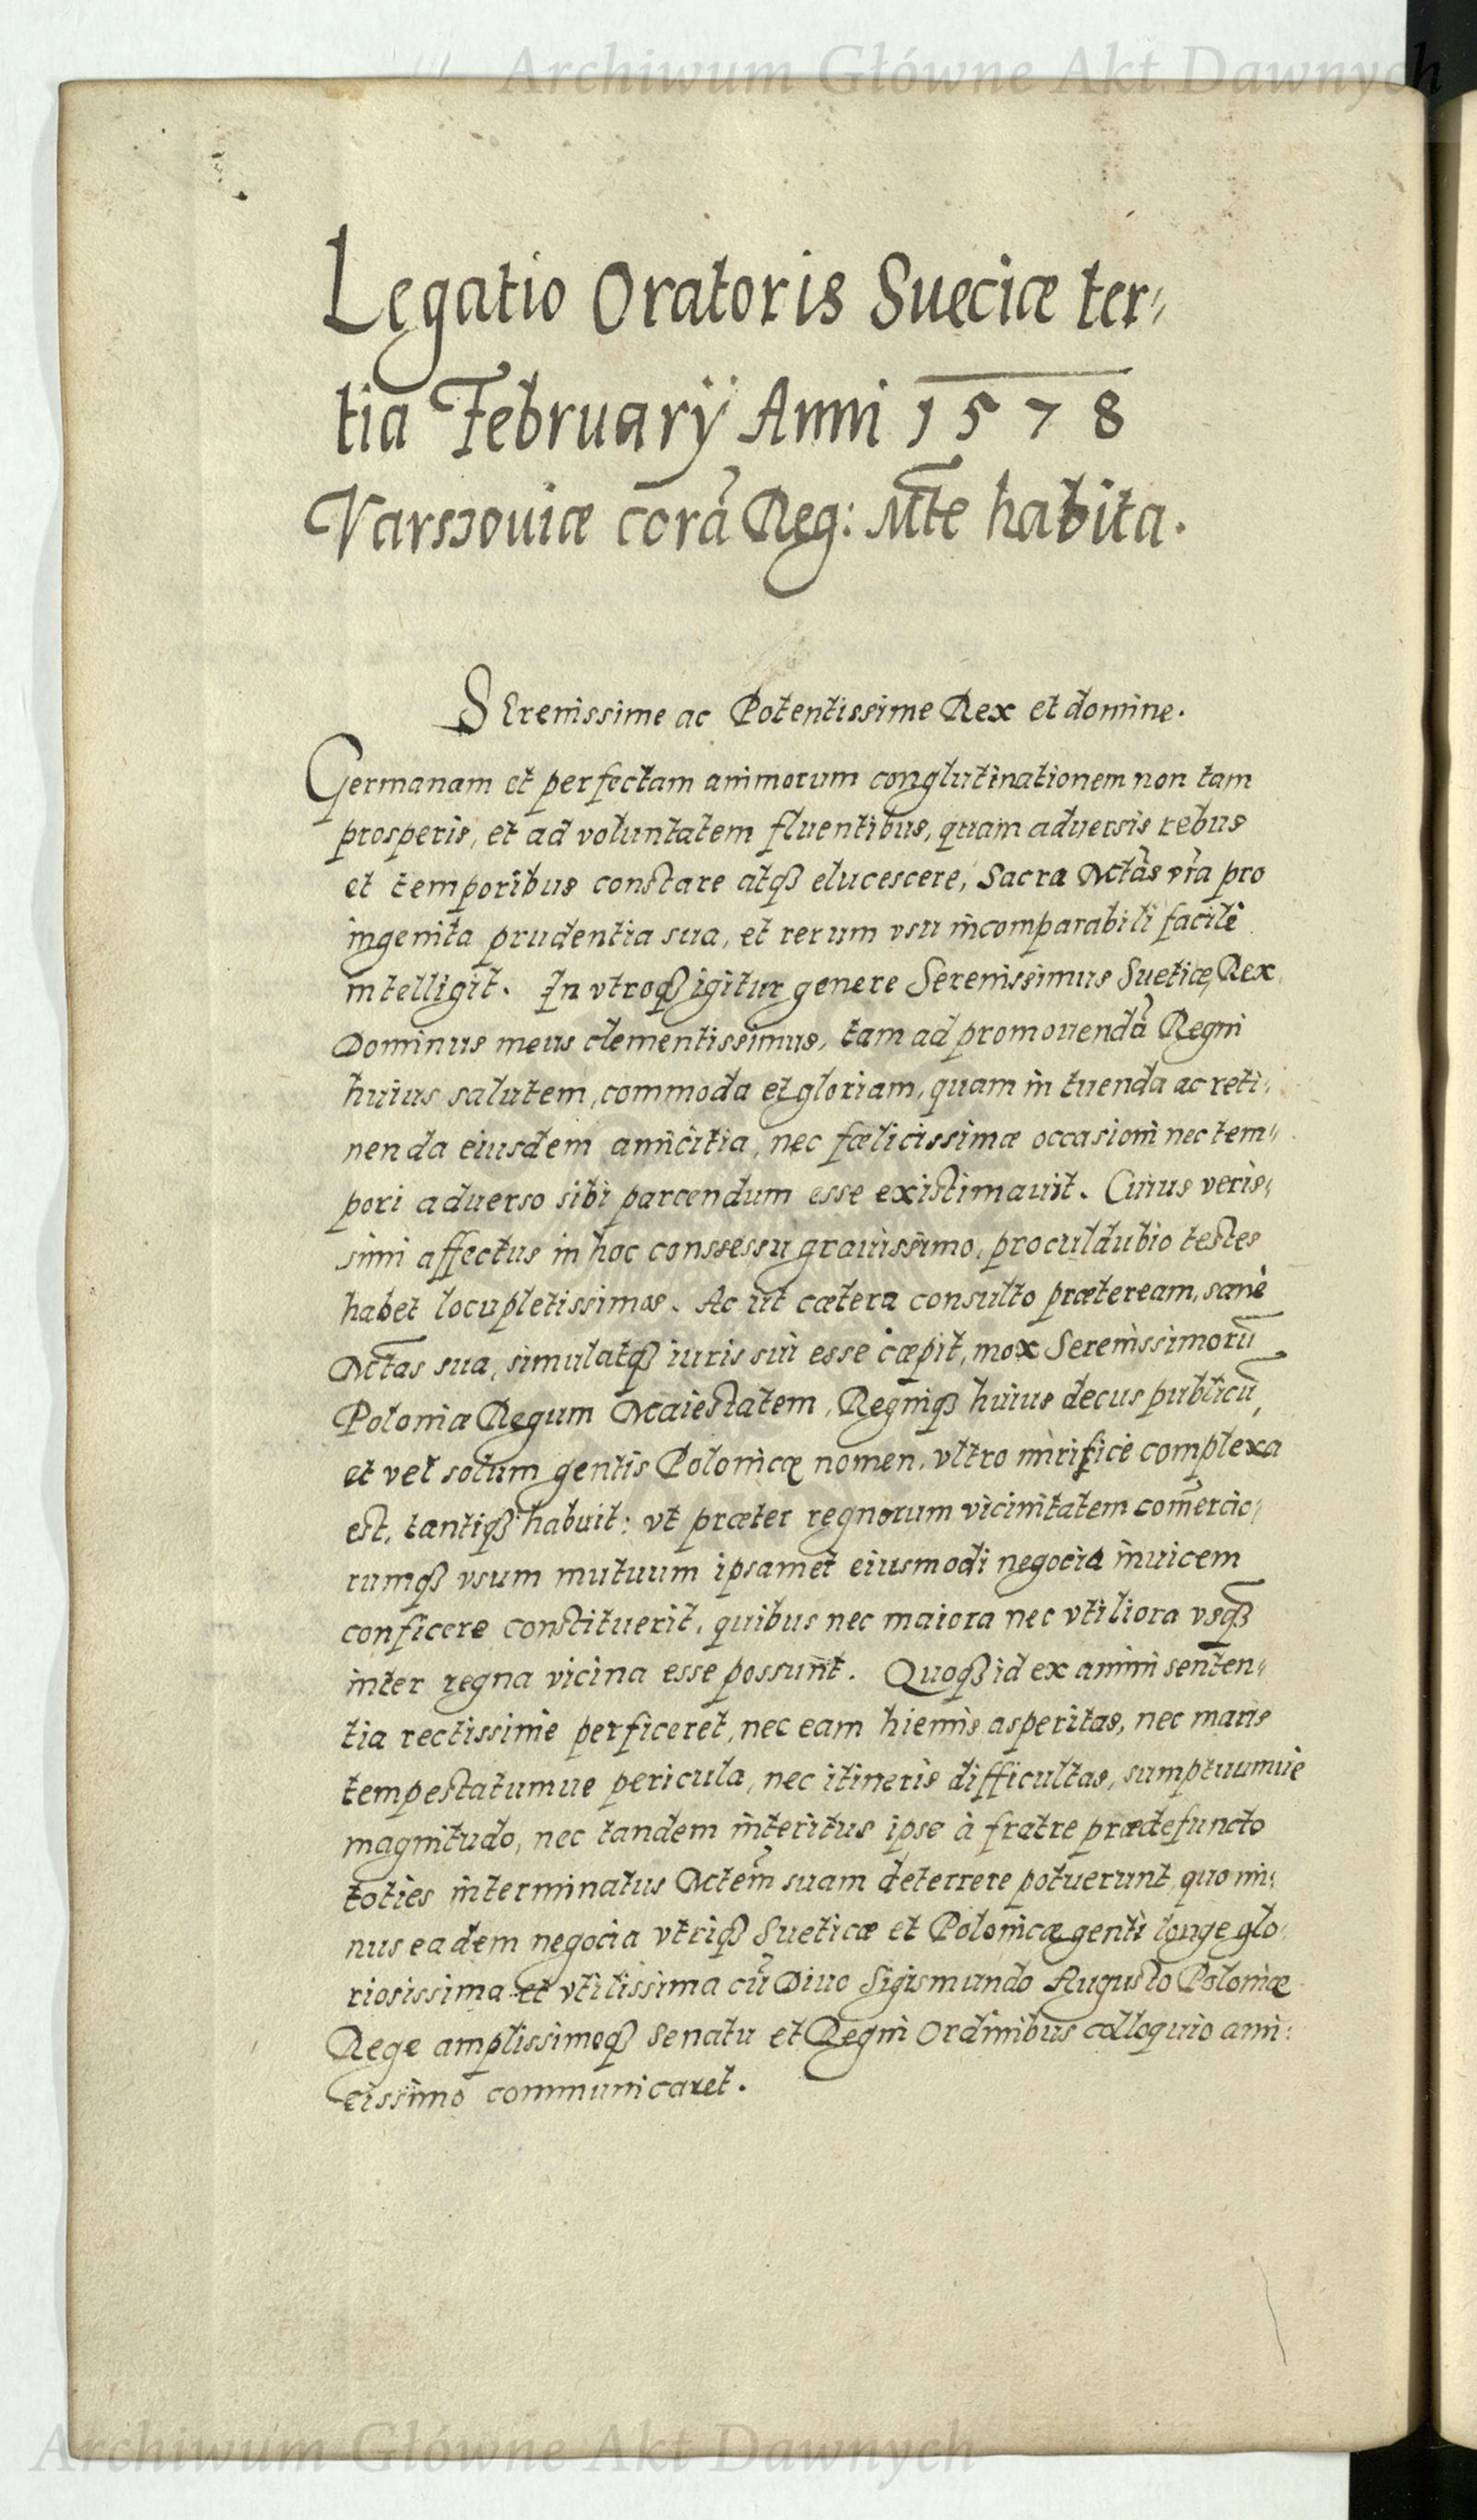 Archiwum Główne Akt Dawnych
Legatio Oratoris Sueciæ ter„
tia Februarÿ Anni 1578
Varsoviæ corã Reg: Mte habita.
SErenissime ac Potentissime Rex et domine.
Germanam et perfectam animorum conglutinationem non tam
prosperis, et ad voluntatem fluentibus, quam aduersis rebus
et temporibus constare atqȝ elucescere, Sacra Mtas vra pro
ingenita prudentia sua, et rerum vsu incomparabili facile
intelligit. In vtroqȝ igitur genere Serenissimus Sueticæ Rex
Dominus meus clementissimus, tam ad promouendã Regni
huius salutem, commoda et gloriam, quam in tuenda ac reti„
nenda eiusdem amicitia, nec fælicissimæ occasioni nec tem„
pori aduerso sibi parcendum esse existimauit. Cuius veris„
simi affectus in hoc conssessu grauissimo, proculdubio testes
habet locupletissimos. Ac ut cætera consulto præteream, sanè
Mtas sua, simulatqȝ iuris sui esse cæpit, mox Serenissimorũ
Poloniæ Regum Maiestatem, Regniqȝ huius decus publicũ,
et vel solum gentis Polonicæ nomen, vltro mirificè complexa
est, tantiqȝ habuit: vt præter regnorum vicinitatem com̃ercio„
rumqȝ vsum mutuum ipsamet eiusmodi negocia inuicem
conficere constituerit, quibus nec maiora nec vtiliora vsqȝ
inter regna vicina esse possunt. Quoqȝ id ex animi senten„
tia rectissime perficeret, nec eam hiemis asperitas, nec maris
tempestatumue pericula, nec itineris difficultas, sumptuumue
magnitudo, nec tandem interitus ipse à fratre prædefuncto
toties interminatus Mtem suam deterrere potuerunt, quo mi„
nus eadem negocia vtriqȝ Sueticæ et Polonicæ genti longe glo„
riosissima et vtilissima cũ Diuo Sigismundo Augusto Poloniæ
Rege amplissimoqȝ Senatu et Regni Ordinibus colloquio ami:
cissimo communicaret.
Archiwum Główne Akt Dawnych